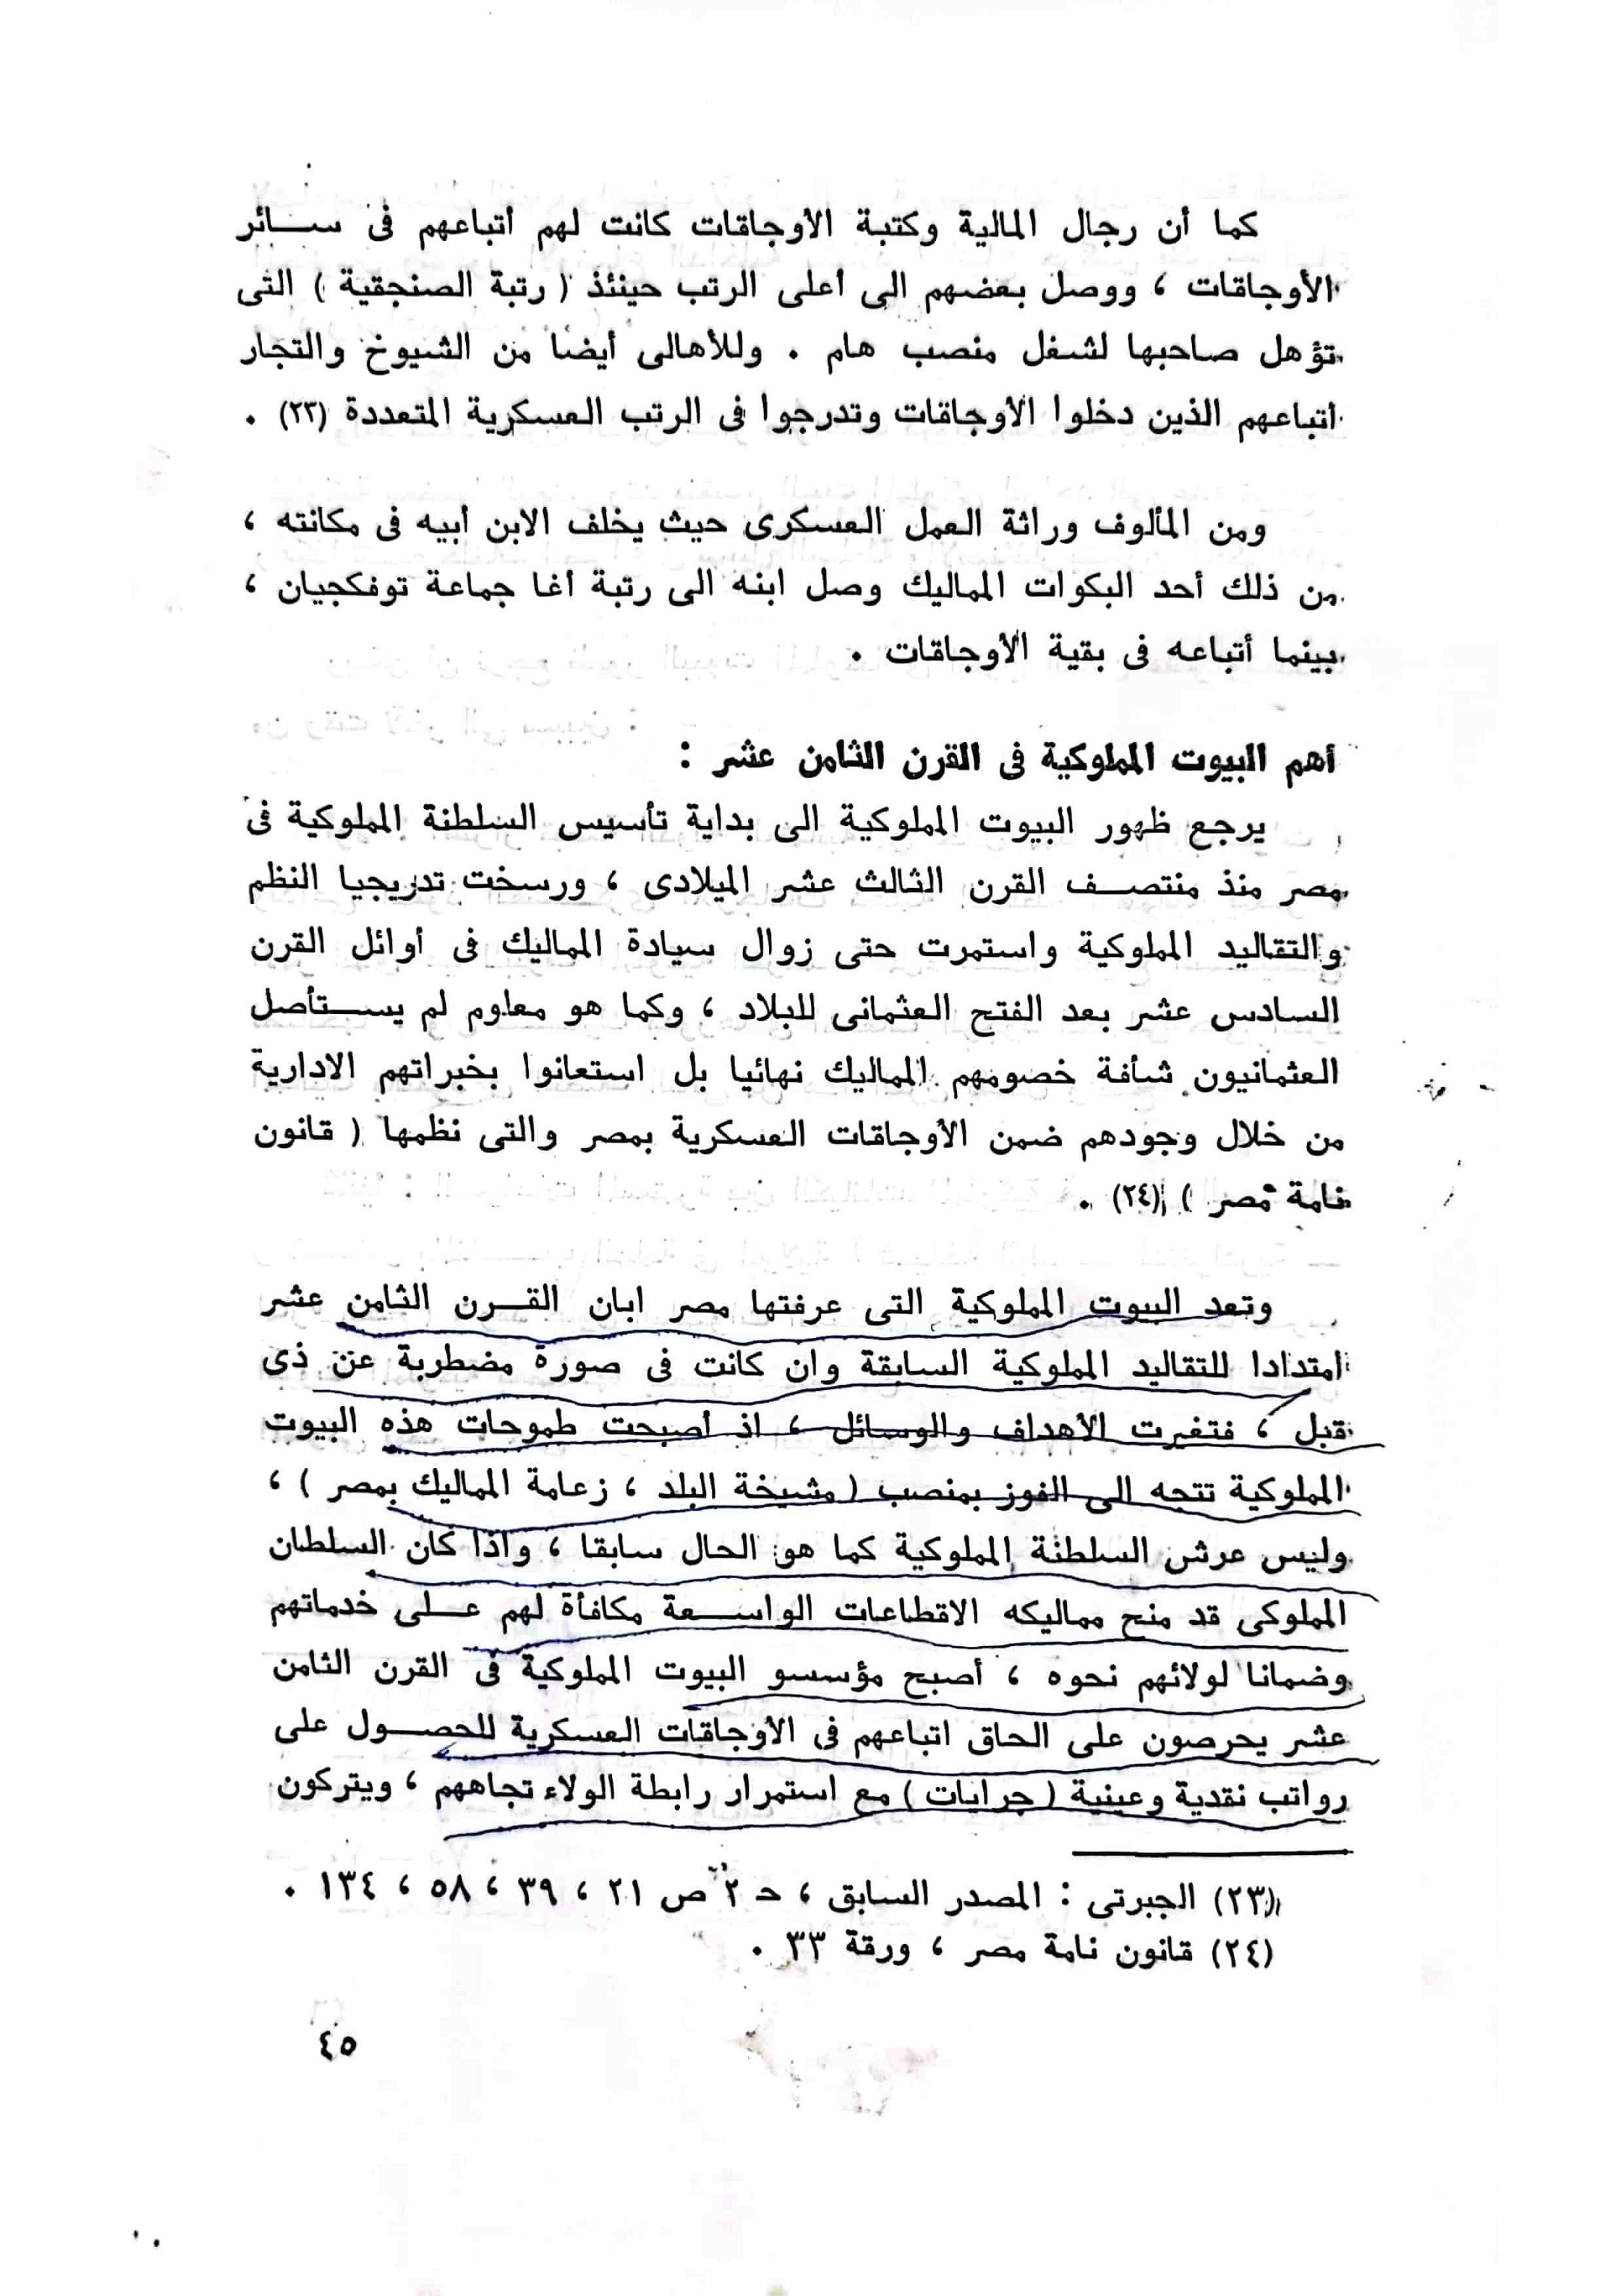 كما أن رجال المالية وكتبة الأوجاقات كانت لهم أتباعهم فى سائر
الأوجاقات ، ووصل بعضهم الى أعلى الرتب حينئذ ( رتبة الصنجقية ) التى
تؤهل صاحبها لشغل منصب هام . وللأهالى أيضا من الشيوخ والتجار
أتباعهم الذين دخلوا الأوجاقات وتدرجوا فى الرتب العسكرية المتعددة (٢٣) .
ومن المألوف وراثة العمل العسكرى حيث يخلف الابن أبيه فى مكانته ،
من ذلك أحد البكوات المماليك وصل ابنه الى رتبة أغا جماعة توفكجيان ،
بينما أتباعه فى بقية الأوجاقات .
أهم البيوت المملوكية فى القرن الثامن عشر :
يرجع ظهور البيوت المملوكية الى بداية تأسيس السلطنة المملوكية فى
مصر منذ منتصف القرن الثالث عشر الميلادى ، ورسخت تدريجيا النظم
والتقاليد المملوكية واستمرت حتى زوال سيادة المماليك فى أوائل القرن
السادس عشر بعد الفتح العثمانى للبلاد ، وكما هو معلوم لم يستأصل
العثمانيون شأفة خصومهم المماليك نهائيا بل استعانوا بخبراتهم الادارية
من خلال وجودهم ضمن الأوجاقات العسكرية بمصر والتى نظمها ( قانون
نامة مصر ) (٢٤) .
وتعد البيوت المملوكية التى عرفتها مصر ابان القرن الثامن عشر
امتدادا للتقاليد المملوكية السابقة وان كانت فى صورة مضطربة عن ذى
قبل ، فتغيرت الأهداف والوسائل ، اذ أصبحت طموحات هذه البيوت
المملوكية تتجه الى الفوز بمنصب ( مشيخة البلد ، زعامة المماليك بمصر ) ،
وليس عرش السلطنة المملوكية كما هو الحال سابقا ، واذا كان السلطان
المملوكى قد منح مماليكه الاقطاعات الواسعة مكافأة لهم على خدماتهم
وضمانا لولائهم نحوه ، أصبح مؤسسو البيوت المملوكية فى القرن الثامن
عشر يحرصون على الحاق اتباعهم فى الأوجاقات العسكرية للحصول على
رواتب نقدية وعينية ( جرايات ) مع استمرار رابطة الولاء تجاههم ، ويتركون
(٢٣) الجبرتى : المصدر السابق ، حـ ٢ ص ٢١ ، ٣٩ ، ٥٨ ، ١٣٤ .
(٢٤) قانون نامة مصر ، ورقة ٣٣ .
٤٥